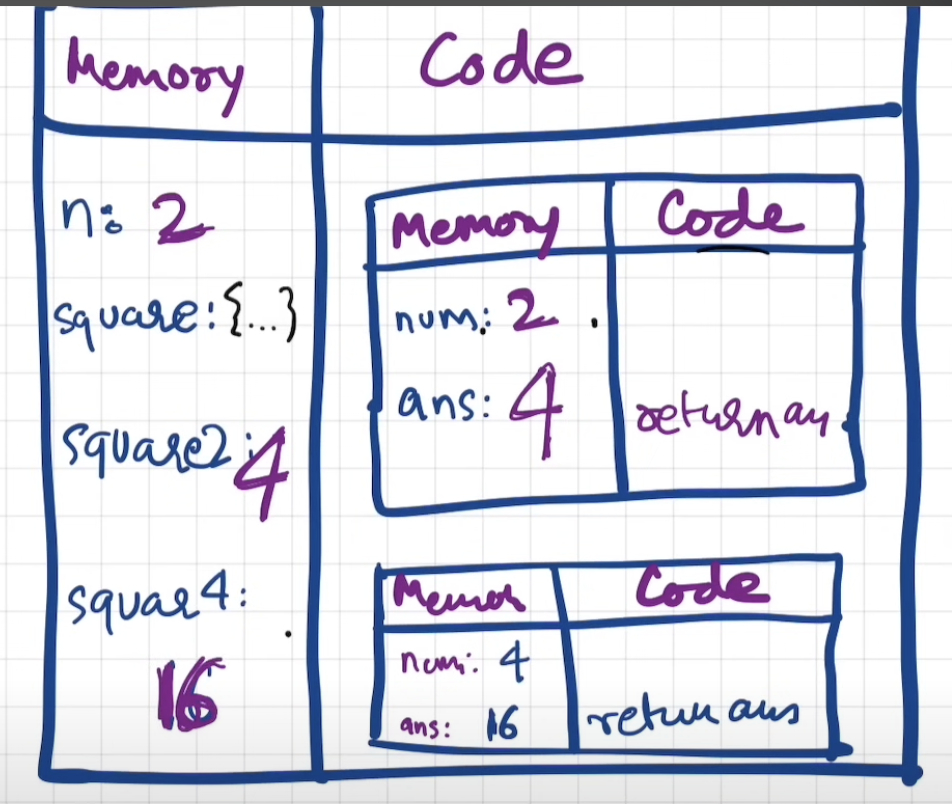 Memory
Code
n: 2
square: {...}
square2: 4
squar4:
16
Memory
Code
num: 2
ans: 4
return an
Code
num: 4
ans: 16
return ans